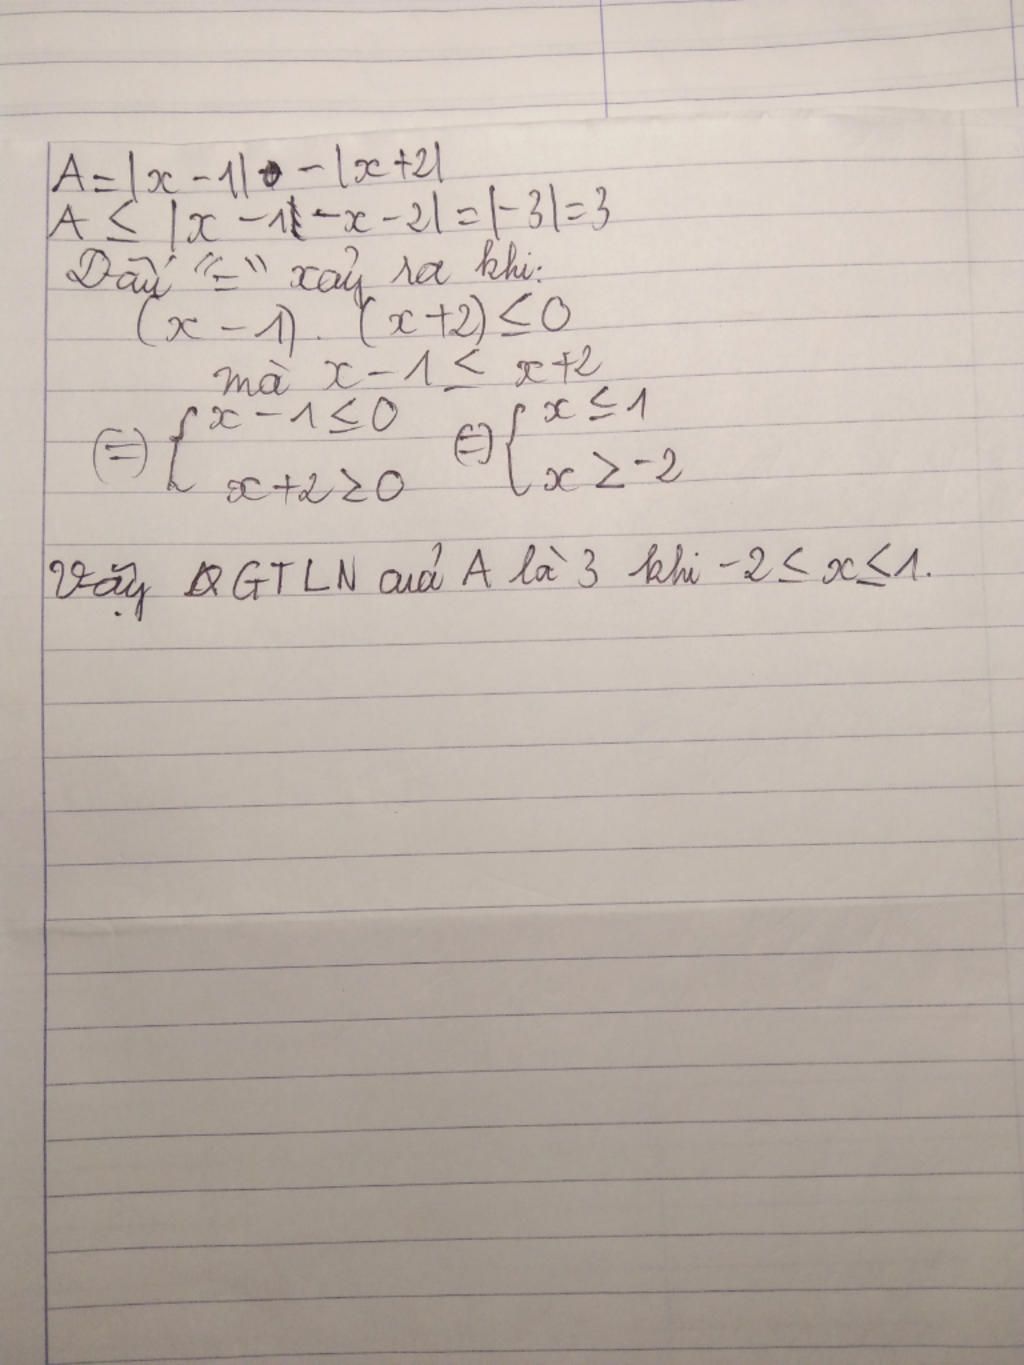 A = |x - 1| - |x + 2|
A ≤ |x - 1 - x - 2| = |-3| = 3
Dấu "=" xảy ra khi:
(x - 1) . (x + 2) ≤ 0
mà x - 1 ≤ x + 2
(=) { x - 1 ≤ 0 (=) { x ≤ 1
x + 2 ≥ 0 x ≥ -2
Vậy GTLN cuả A là 3 khi -2 ≤ x ≤ 1.